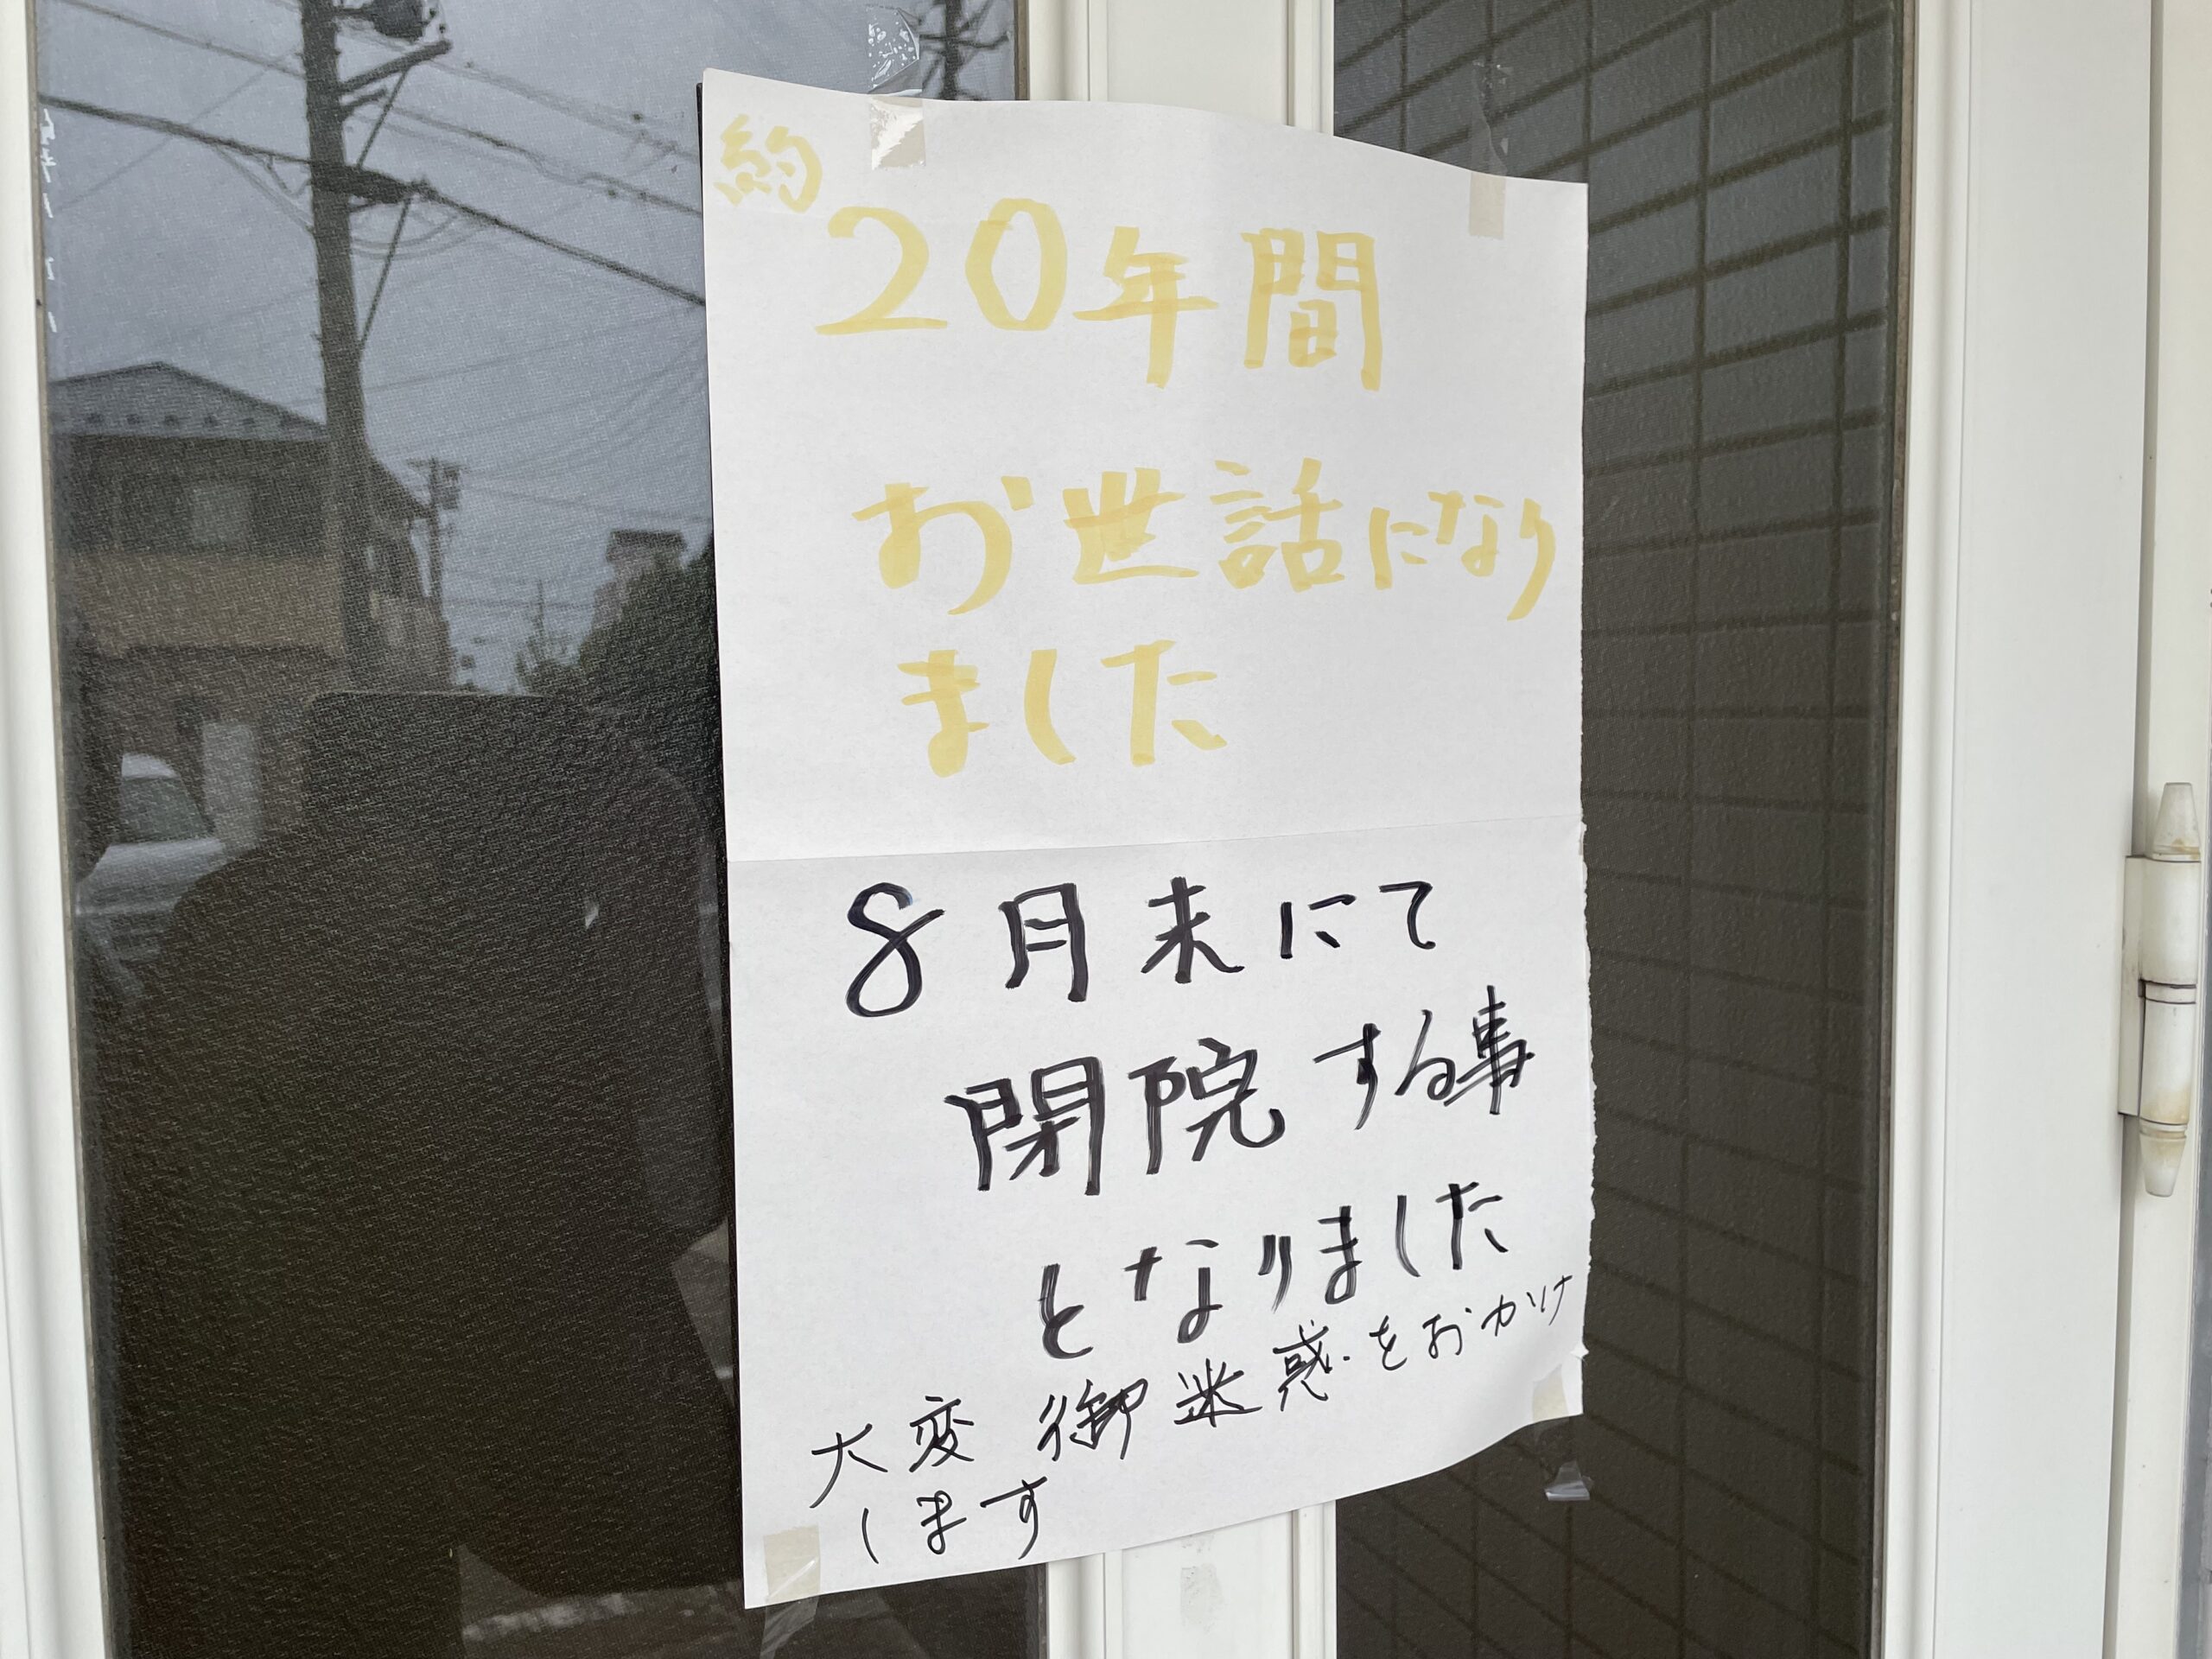 約
20年間
お世話になり
ました
8月末にて
閉院する事
となりました
大変御迷惑をおかけ
します